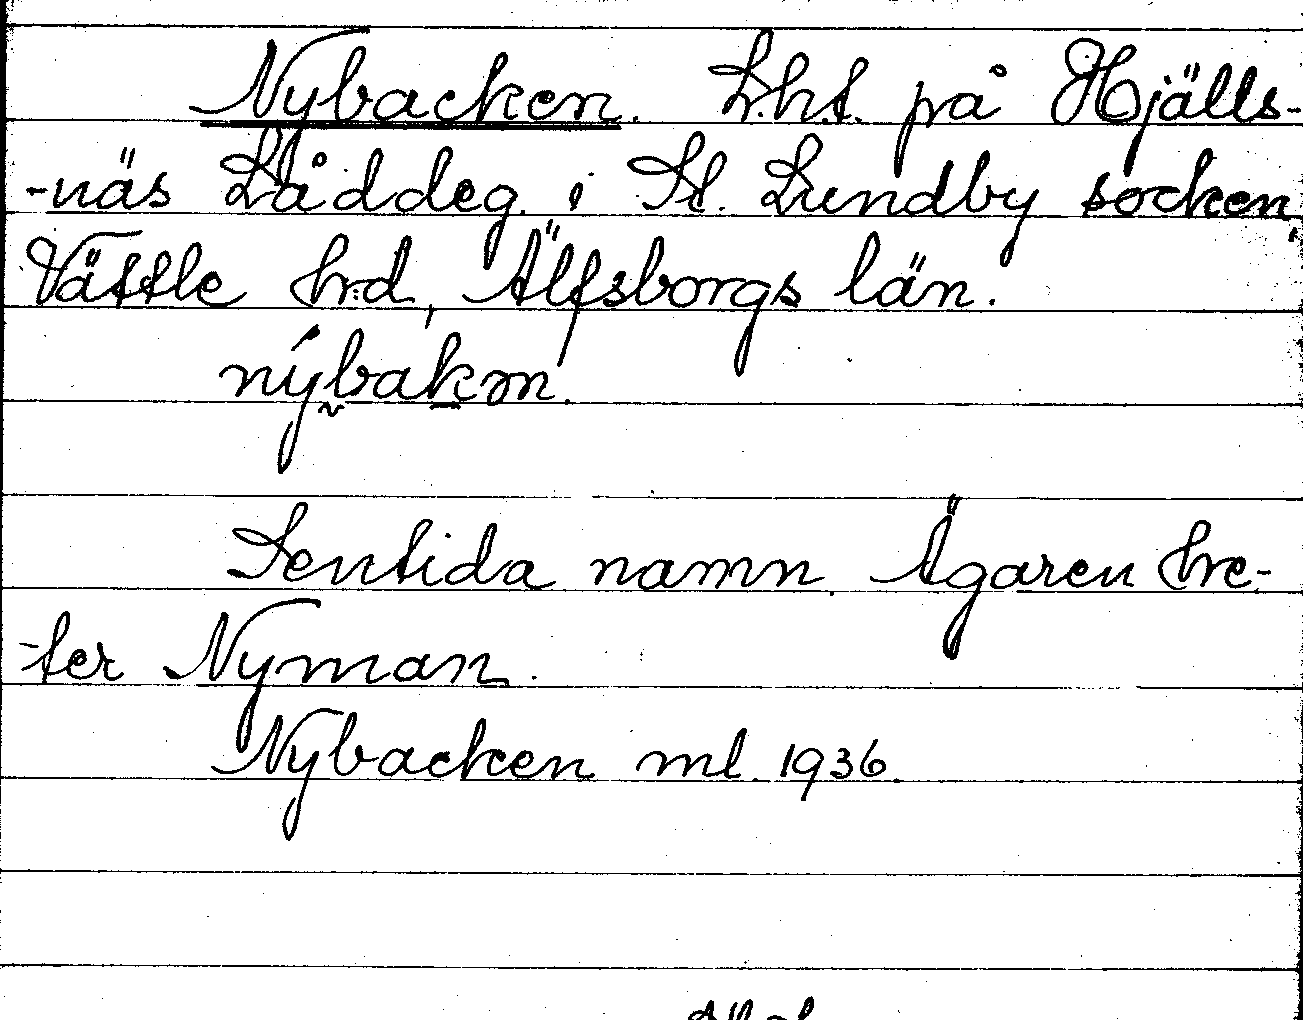 Nybacken. Lht. på Hjälls-
-näs Låddeg. i St. Lundby socken,
Vättle hrd, Älfsborgs län.
nýbakən.
Sentida namn. Ägaren he-
-ter Nyman.
Nybacken ml. 1936.